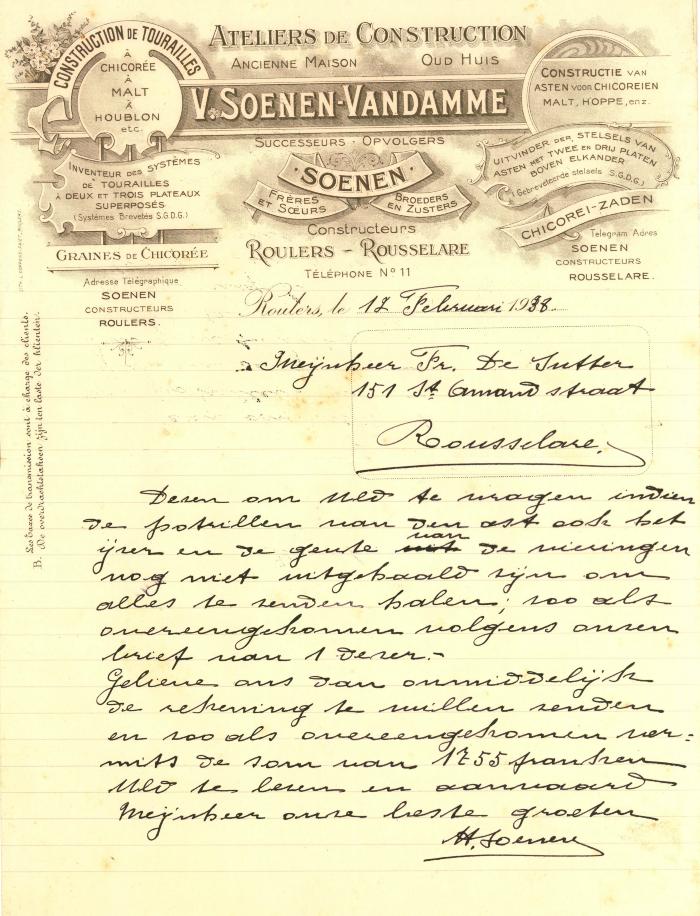 CONSTRUCTION DE TOURAILLES
À
CHICORÉE
À
MALT
À
HOUBLON
etc.
ATELIERS DE CONSTRUCTION
ANCIENNE MAISON OUD HUIS
V. SOENEN-VANDAMME
CONSTRUCTIE VAN
ASTEN VOOR CHICOREIEN
MALT, HOPPE, enz.
SUCCESSEURS - OPVOLGERS
· SOENEN ·
FRÈRES
ET SŒURS
BROEDERS
EN ZUSTERS
Constructeurs
ROULERS - ROUSSELARE
TÉLÉPHONE Nº 11
INVENTEUR DES SYSTÈMES
DE TOURAILLES
À DEUX ET TROIS PLATEAUX
SUPERPOSÉS
(Systèmes Brevetés S.G.D.G.)
GRAINES DE CHICORÉE
Adresse Télégraphique
SOENEN
CONSTRUCTEURS
ROULERS.
UITVINDER DER STELSELS VAN
ASTEN MET TWEE EN DRIJ PLATEN
BOVEN ELKANDER
(Gebreveteerde stelsels S.G.D.G.)
CHICOREI-ZADEN
Telegram Adres
SOENEN
CONSTRUCTEURS
ROUSSELARE.
Les taxes de transmission sont à charge des clients.
B. De overdrachttaksen zijn ten laste der klienten.
Roulers, le 17 Februari 1938
Meijnheer Fr. De Sutter
151 St Amand straat
Rousselare.
Dezen om Uld te vragen indien
de potrillen van den ast ook het
ijzer en de geute van de vieringen
nog niet uitgehaald zijn om
alles te zenden halen; zoo als
overeengekomen volgens onzen
brief van 1 dezer.-
Gelieve ons dan onmiddelijk
de rekening te willen zenden
en zoo als overeengekomen ver=
mits de som van 1755 franken
Uld te lezen en aanvaard
Meijnheer onze beste groeten
H. Soenen